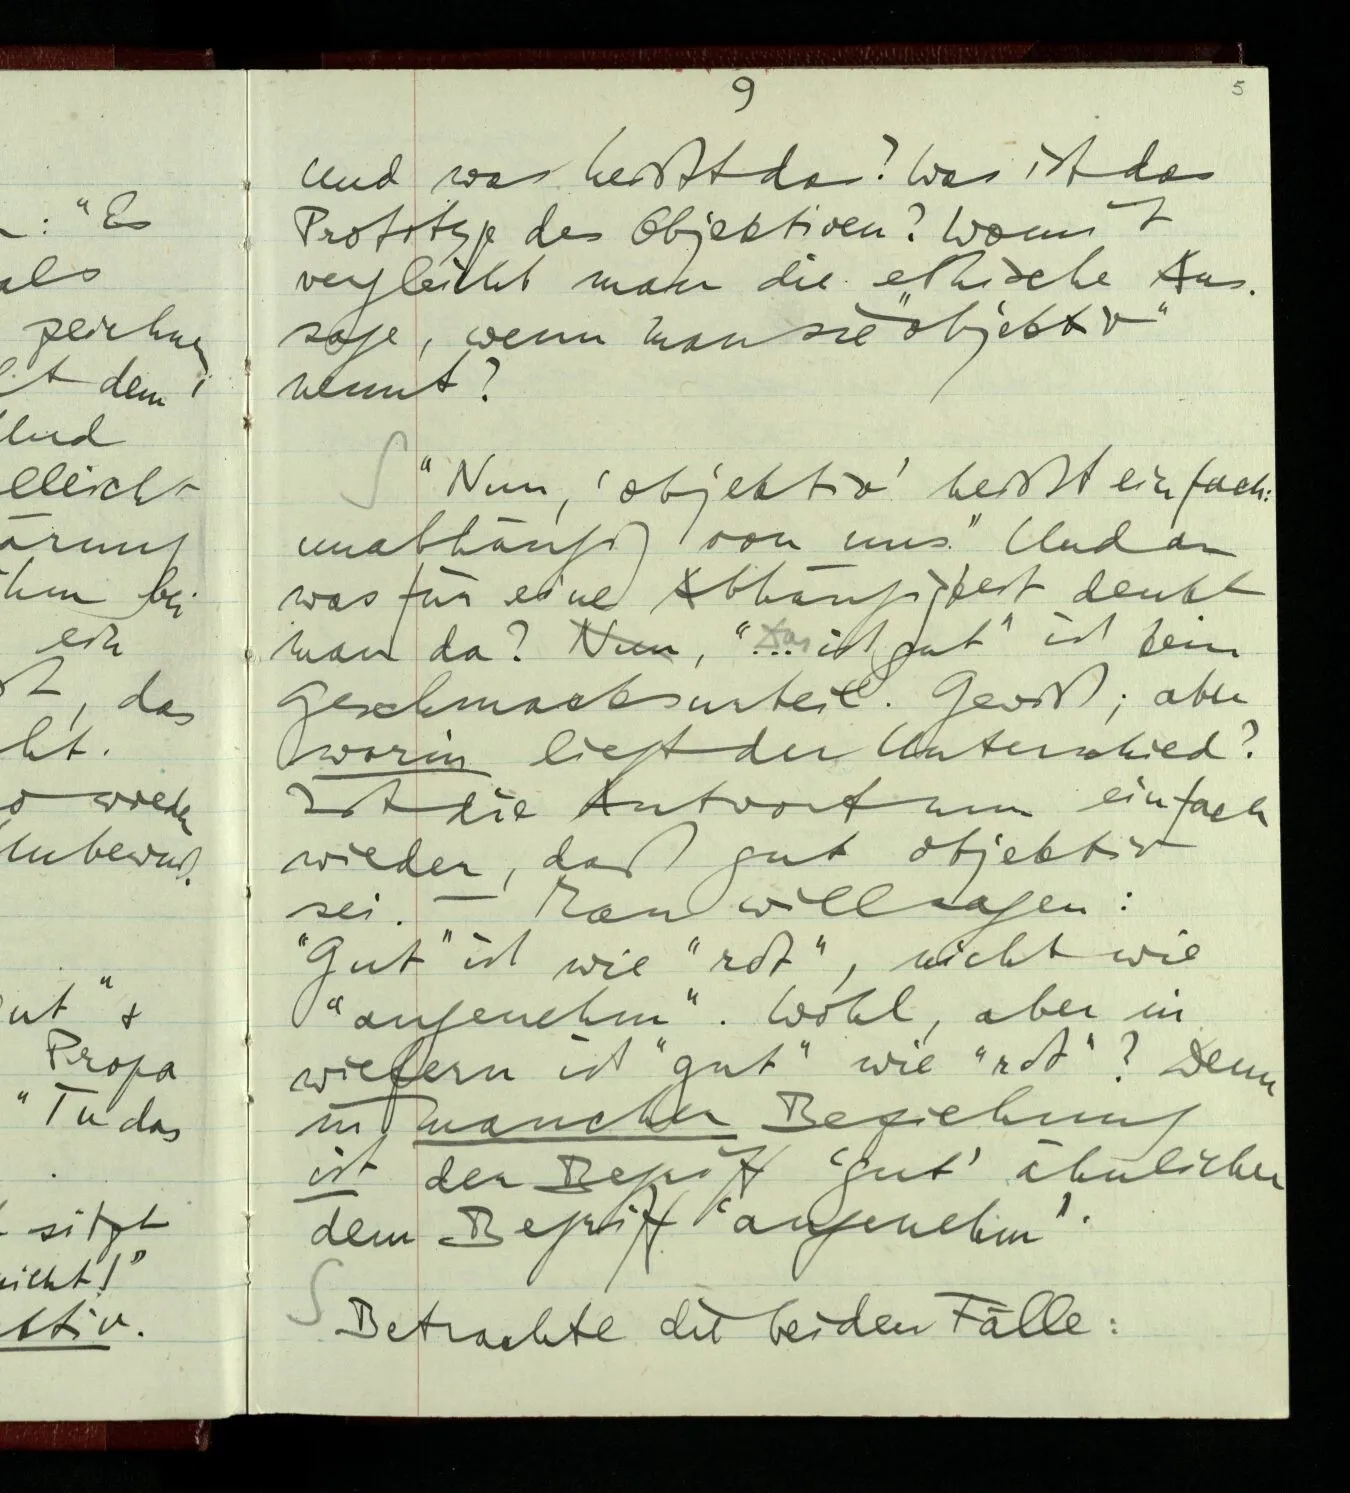 9
5
Und was heißt das? Was ist das
Prototyp des Objektiven? Womit
vergleicht man die ethische Aus-
sage, wenn man sie "objektiv"
nennt?
∫ "Nun, 'objektiv' heißt einfach:
unabhängig von uns." Und an
was für eine Abhängigkeit denkt
man da? Nun, "... ist gut" ist kein
Geschmacksurteil. Gewiß; aber
worin liegt der Unterschied?
Ist die Antwort nun einfach
wieder, daß gut objektiv
sei. — Man will sagen:
"Gut" ist wie "rot", nicht wie
"angenehm". Wohl, aber in
wiefern ist "gut" wie "rot"? Denn
in mancher Beziehung
ist der Begriff 'gut' ähnlicher
dem Begriff 'angenehm'.
∫ Betrachte die beiden Fälle:
: "Es
als
zeichnen
dem
Und
elleicht
ärung
ihm bei
ein
, das
ht.
wieder
Unbewuß.
gut" &
Propa
"Tu das
sitzt
nicht!"
ektiv.